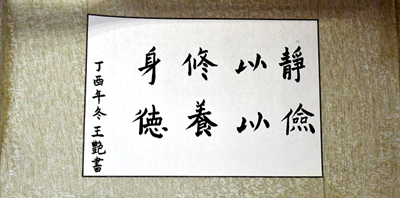 靜儉
以以
修養
身德
丁酉年冬王艷書